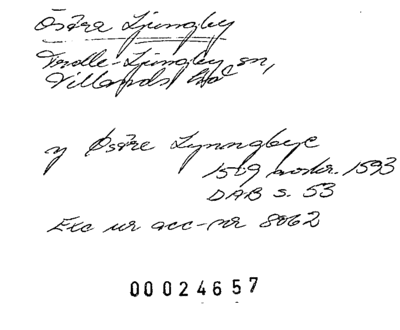 Östra Ljungby
Trolle-Ljungby sn,
Villands hd
y Østre Lynngbye
1509 avskr. 1593
DAB s. 53
Exc ur acc-nr 8062
00024657